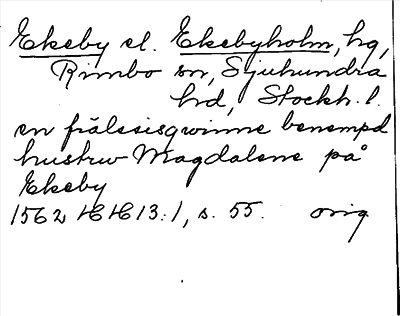 Ekeby el. Ekebyholm, hg,
Rimbo sn, Sjuhundra
hd, Stockh. l.
en frälssisqwinne benempd
hustrw Magdalene på
Ekeby
1562 HH 13:1, s. 55. orig